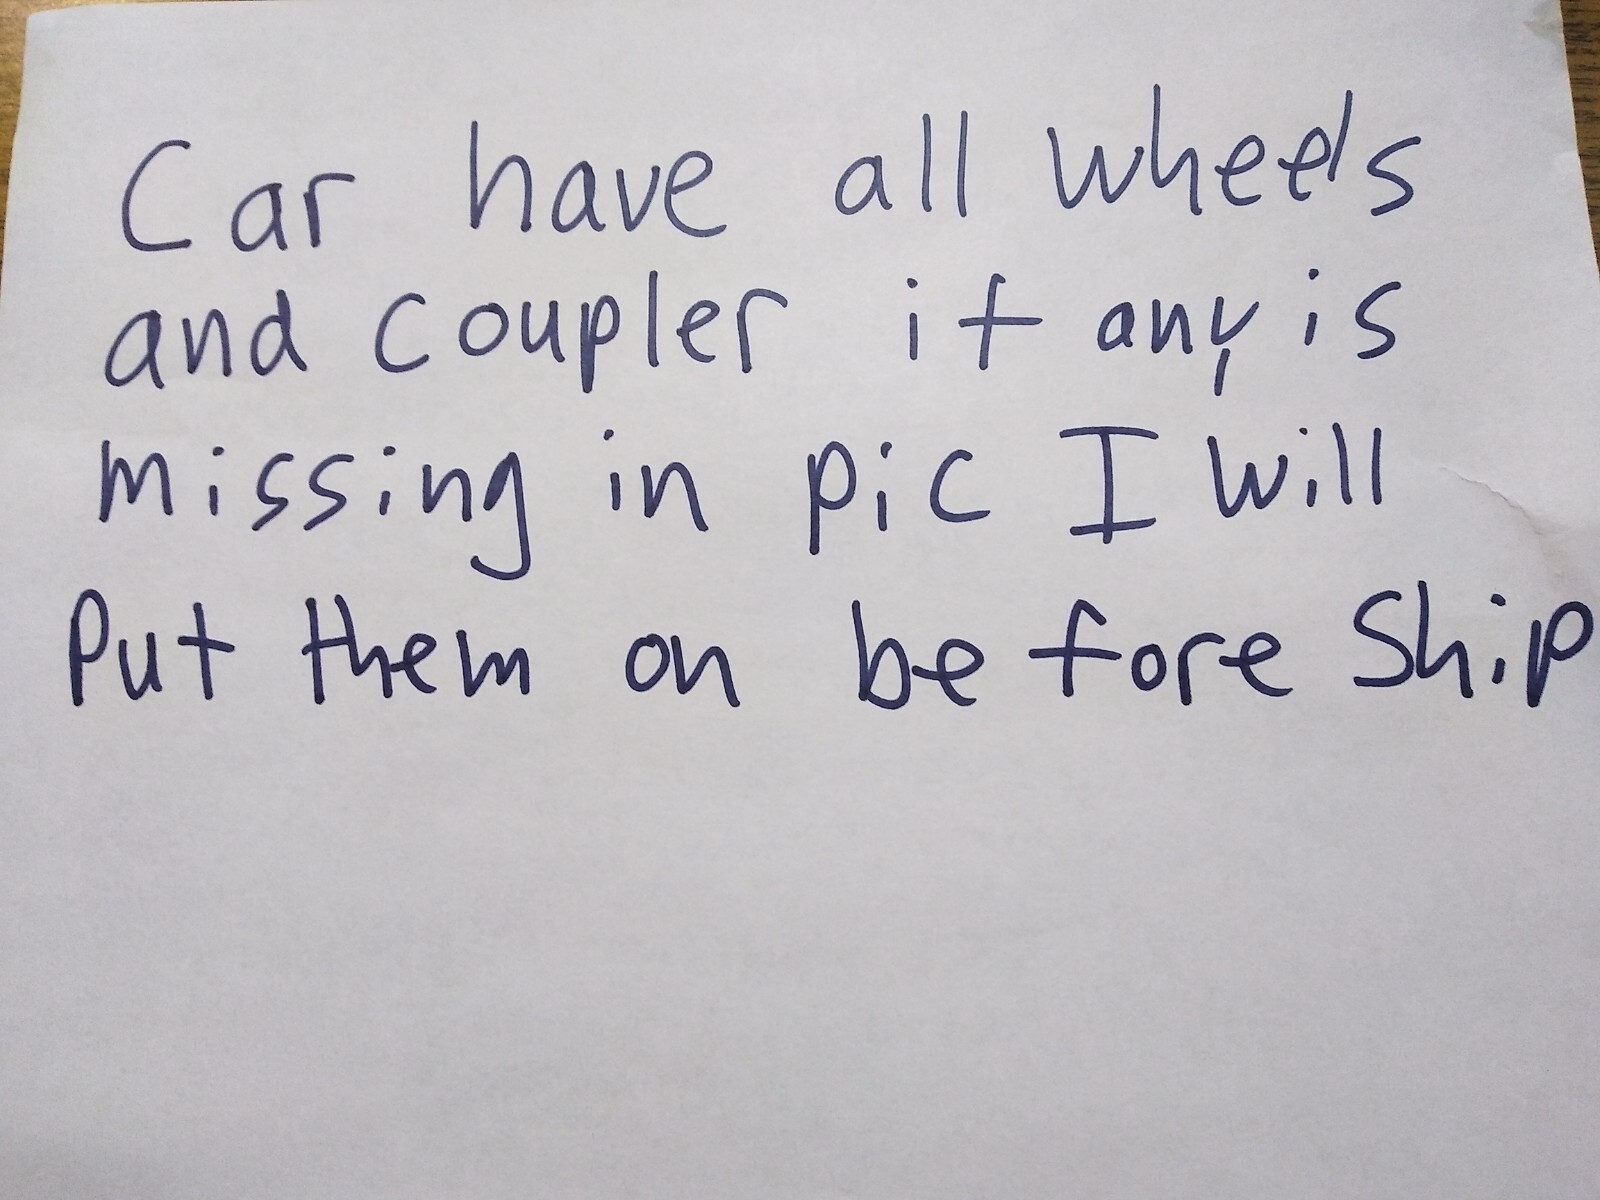 Car have all wheels
and coupler if any is
missing in pic I will
Put them on before Ship